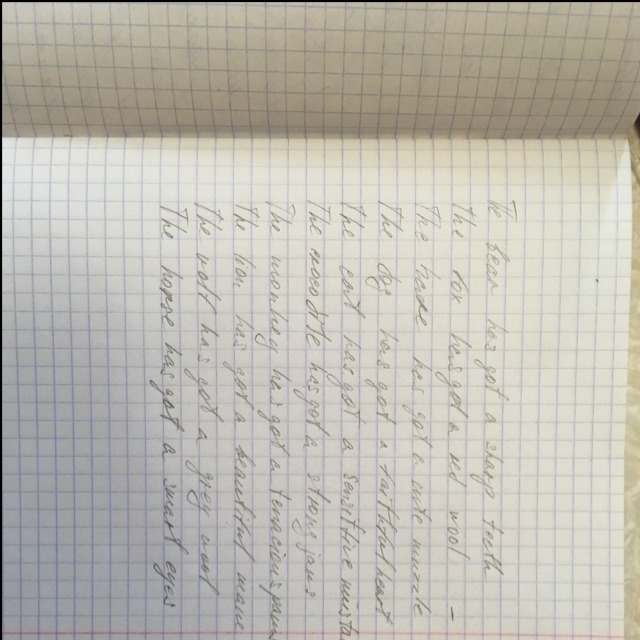 The bear has got a sharp teeth
The fox has got a red wool
The hare has got a cute muzzle
The dog has got a faithful heart
The cat has got a sensitive
The has got a strong jaws
The monkey has got a
The lion has got a beautiful mane
The wolf has got a grey wool
The horse has got a smart eyes